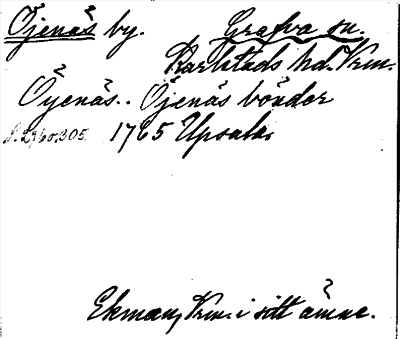 Öjenäs by. Grafva sn.
Karlstads hd. Vrm.
Öyenäs.. Öjenäs bönder
s. 296o.305. 1765 Upsala.
Ekman, Vrm. i sitt ämne.